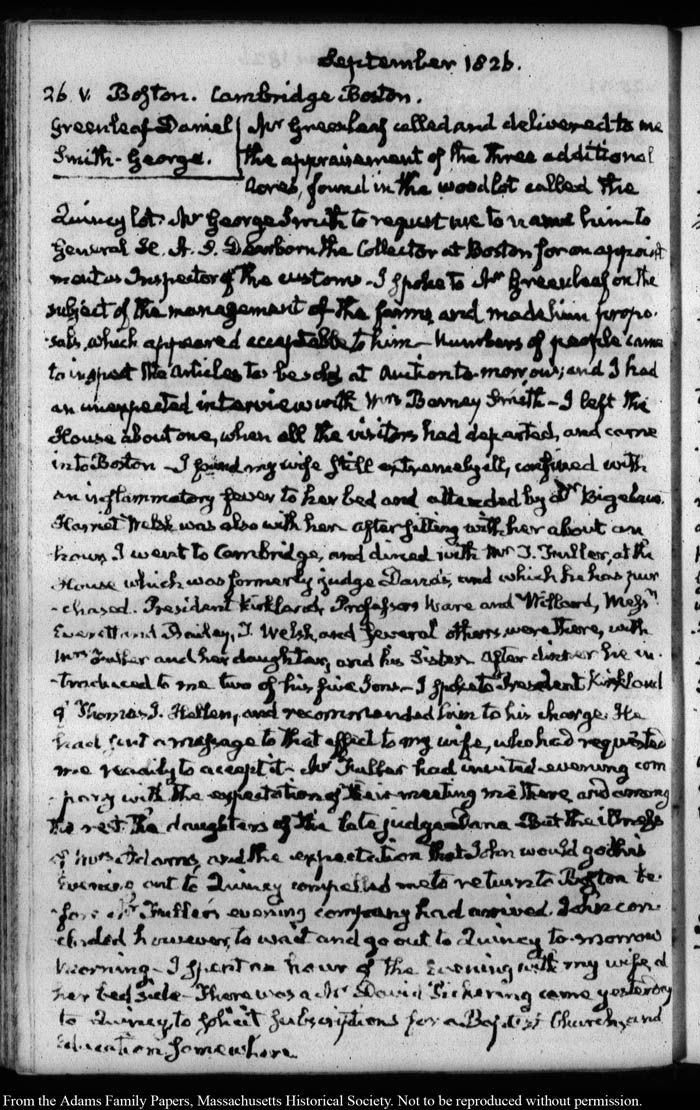 September 1826.
26. V. Boston. Cambridge Boston.
Greenleaf Daniel Mr Greenleaf called and delivered to me
Smith- George. the appraisement of the three additional
Acres, found in the woodlot called the
Quincy lot. Mr George Smith to request me to name him to
General H. A. S. Dearborn the Collector at Boston for an appoint
ment as Inspector of the customs- I spoke to Mr Greenleaf on the
subject of the management of the farms, and made him propo-
-sals, which appeared acceptable to him- Numbers of people came
to inspect the articles to be sold at Auction to-morrow; and I had
an unexpected interview with Mrs Barney Smith- I left the
House about one, when all the visitors had departed, and came
into Boston- I found my wife still extremely ill, confined with
an inflammatory fever to her bed and attended by Dr Bigelow.
Harriet Welsh was also with her. After sitting with her about an
hour, I went to Cambridge, and dined with Mr T. Fuller, at the
House which was formerly judge Dana's, and which he has pur
-chased. President Kirkland, Professors Ware and Willard, Messrs
Everett and Bailey, T. Welsh, and several others were there, with
Mrs Fuller and her daughter, and his Sister. After dinner he in-
-troduced to me two of his five Sons- I spoke to President Kirkland
of Thomas J. Hellen, and recommended him to his charge. He
had sent a message to that effect to my wife, who had requested
me readily to accept it- Mr Fuller had invited evening com
-pany with the expectation of their meeting me there, and among
the rest the daughters of the late judge Dana- But the illness
of Mrs Adams, and the expectation that John would go this
Evening out to Quincy compelled me to return to Boston be-
-fore Mr Fuller's evening company had arrived. John con-
-cluded however, to wait and go out to Quincy to-morrow
Morning- I spent an hour of the Evening with my wife, at
her bed side- There was a Mr David Pickering came yesterday
to Quincy to solicit subscriptions for a Baptist Church, and
Education somewhere.
From the Adams Family Papers, Massachusetts Historical Society. Not to be reproduced without permission.